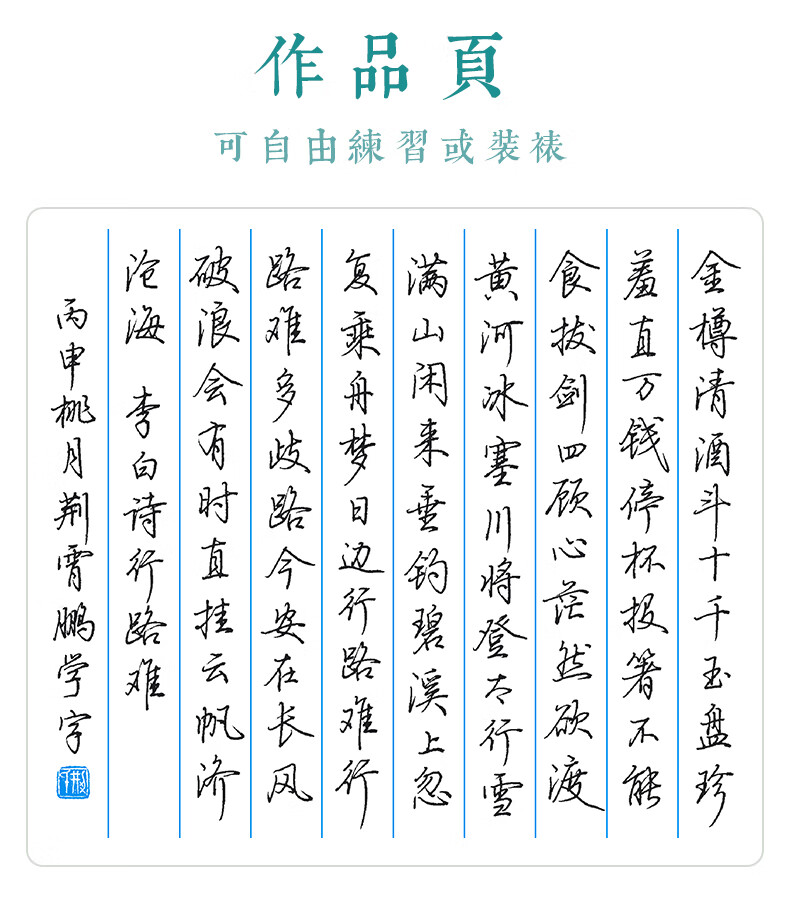 作品頁
可自由練習或裝裱
金樽清酒斗十千玉盘珍
羞直万钱停杯投箸不能
食拔剑四顾心茫然欲渡
黄河冰塞川将登太行雪
满山闲来垂钓碧溪上忽
复乘舟梦日边行路难行
路难多歧路今安在长风
破浪会有时直挂云帆济
沧海 李白诗行路难
丙申桃月荆霄鹏学字